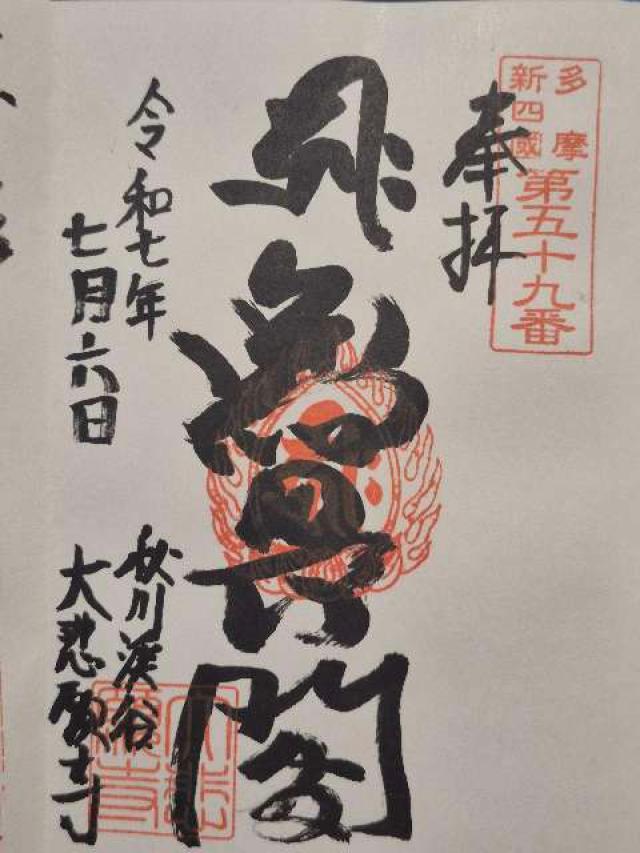 多摩
新四國
第五十九番
奉拝
無畏閣
令和七年
七月六日
秋川渓谷
大悲願寺
大悲
願寺